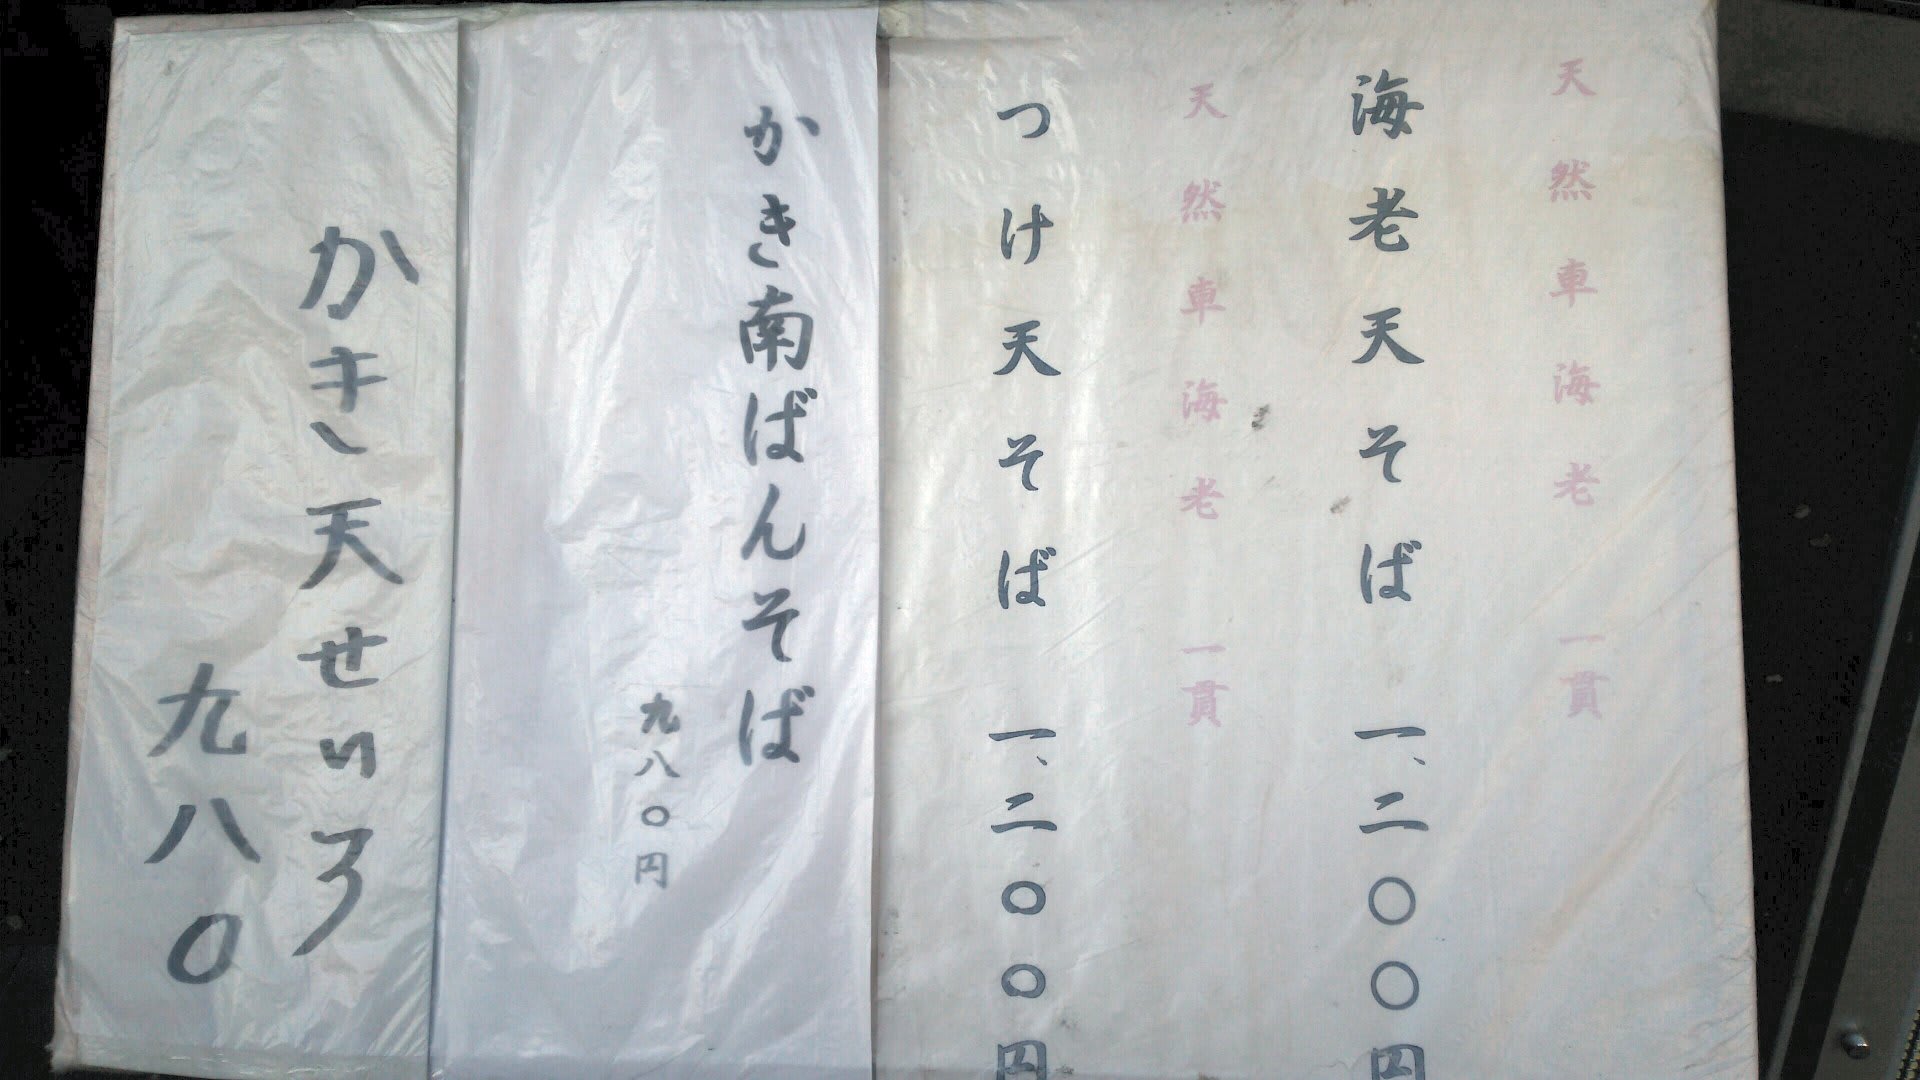 天然車海老 一貫
海老天そば 一、二〇〇円
天然車海老 一貫
つけ天そば 一、二〇〇円
かき南ばんそば
九八〇円
かき天せいろ
九八〇